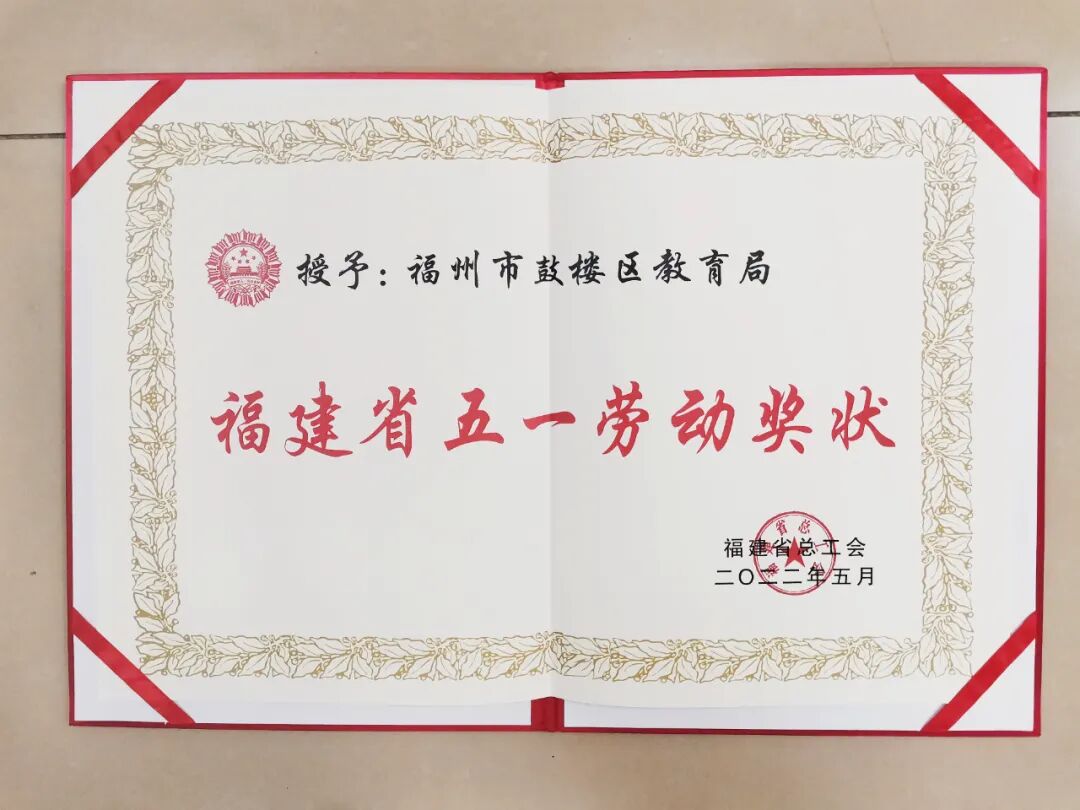 授予：福州市鼓楼区教育局
福建省五一劳动奖状
福建省总工会
二〇二二年五月